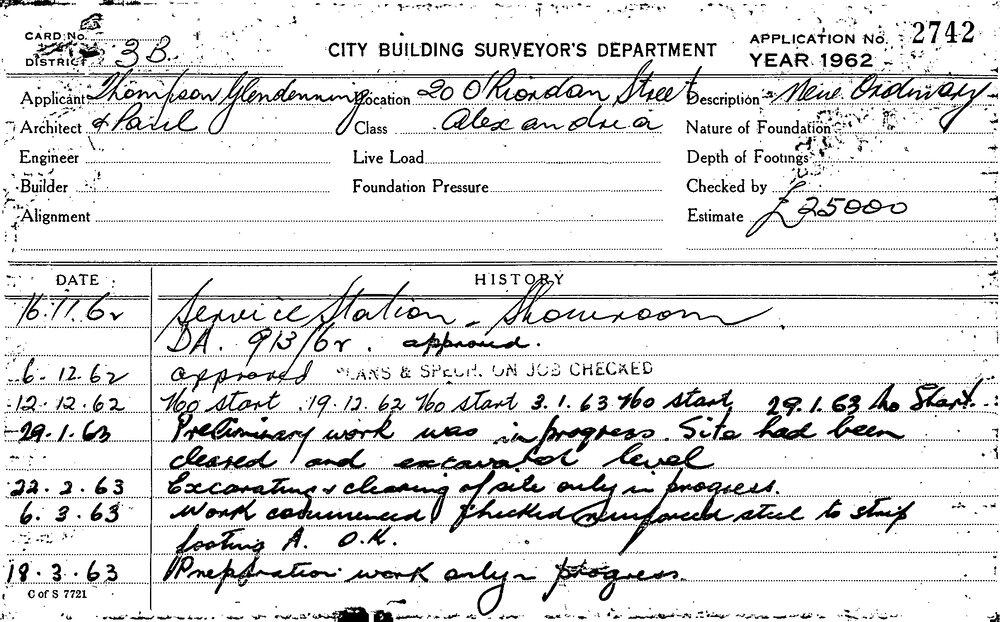 CARD No.
DISTRICT 3B
CITY BUILDING SURVEYOR'S DEPARTMENT
APPLICATION No. 2742
YEAR 1962
Applicant Thompson Glendenning Location 20 O'Riordan Street Description New Ordinary
Architect & Paul Class Alexandria Nature of Foundation
Engineer Live Load Depth of Footings
Builder Foundation Pressure Checked by
Alignment Estimate £25000
DATE HISTORY
16.11.62 Service Station - Showroom
DA. 913/62. approved.
6.12.62 approved PLANS & SPECN. ON JOB CHECKED
12.12.62 No start 19.12.62 No start 3.1.63 No start 29.1.63 No Start.
29.1.63 Preliminary work was in progress. Site had been
cleared and excavated level
22.2.63 Excavating & clearing of site only in progress.
6.3.63 Work commenced, checked reinforced steel to strip
footing A. O.K.
18.3.63 Preparation work only in progress.
C of S 7721